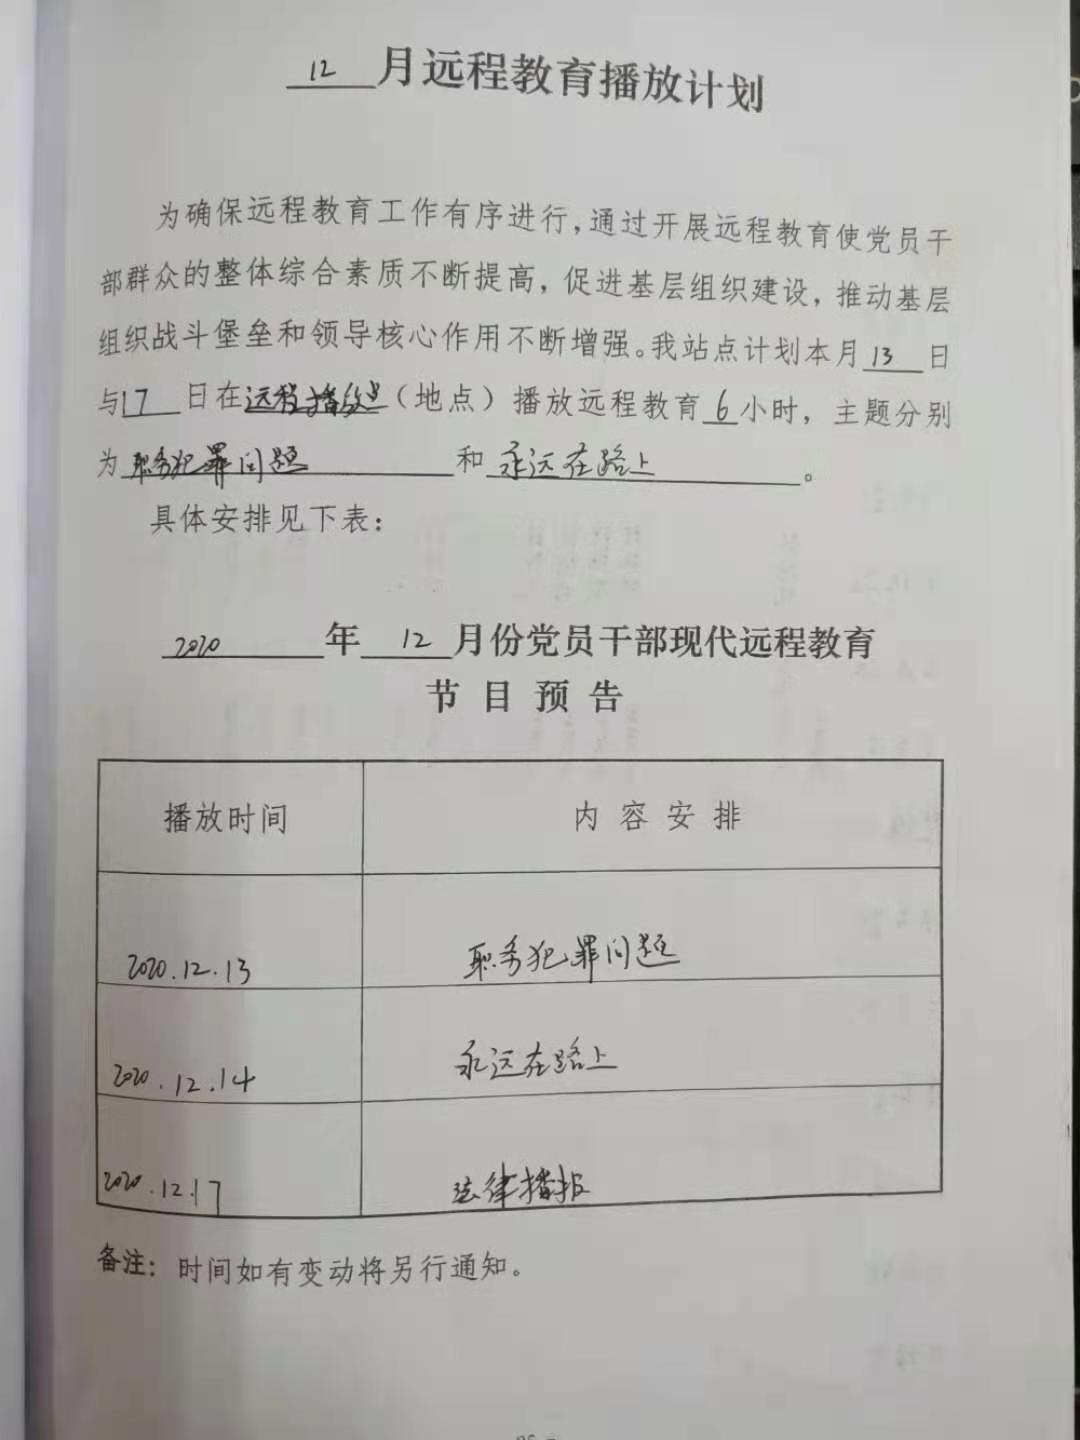 12月远程教育播放计划
为确保远程教育工作有序进行,通过开展远程教育使党员干
部群众的整体综合素质不断提高，促进基层组织建设，推动基层
组织战斗堡垒和领导核心作用不断增强。我站点计划本月13日
与17日在远程播放点（地点）播放远程教育6小时，主题分别
为职务犯罪问题和永远在路上。
具体安排见下表：
2020年12月份党员干部现代远程教育
节目预告
播放时间 内容安排
2020.12.13 职务犯罪问题
2020.12.14 永远在路上
2020.12.17 法律播报
备注：时间如有变动将另行通知。